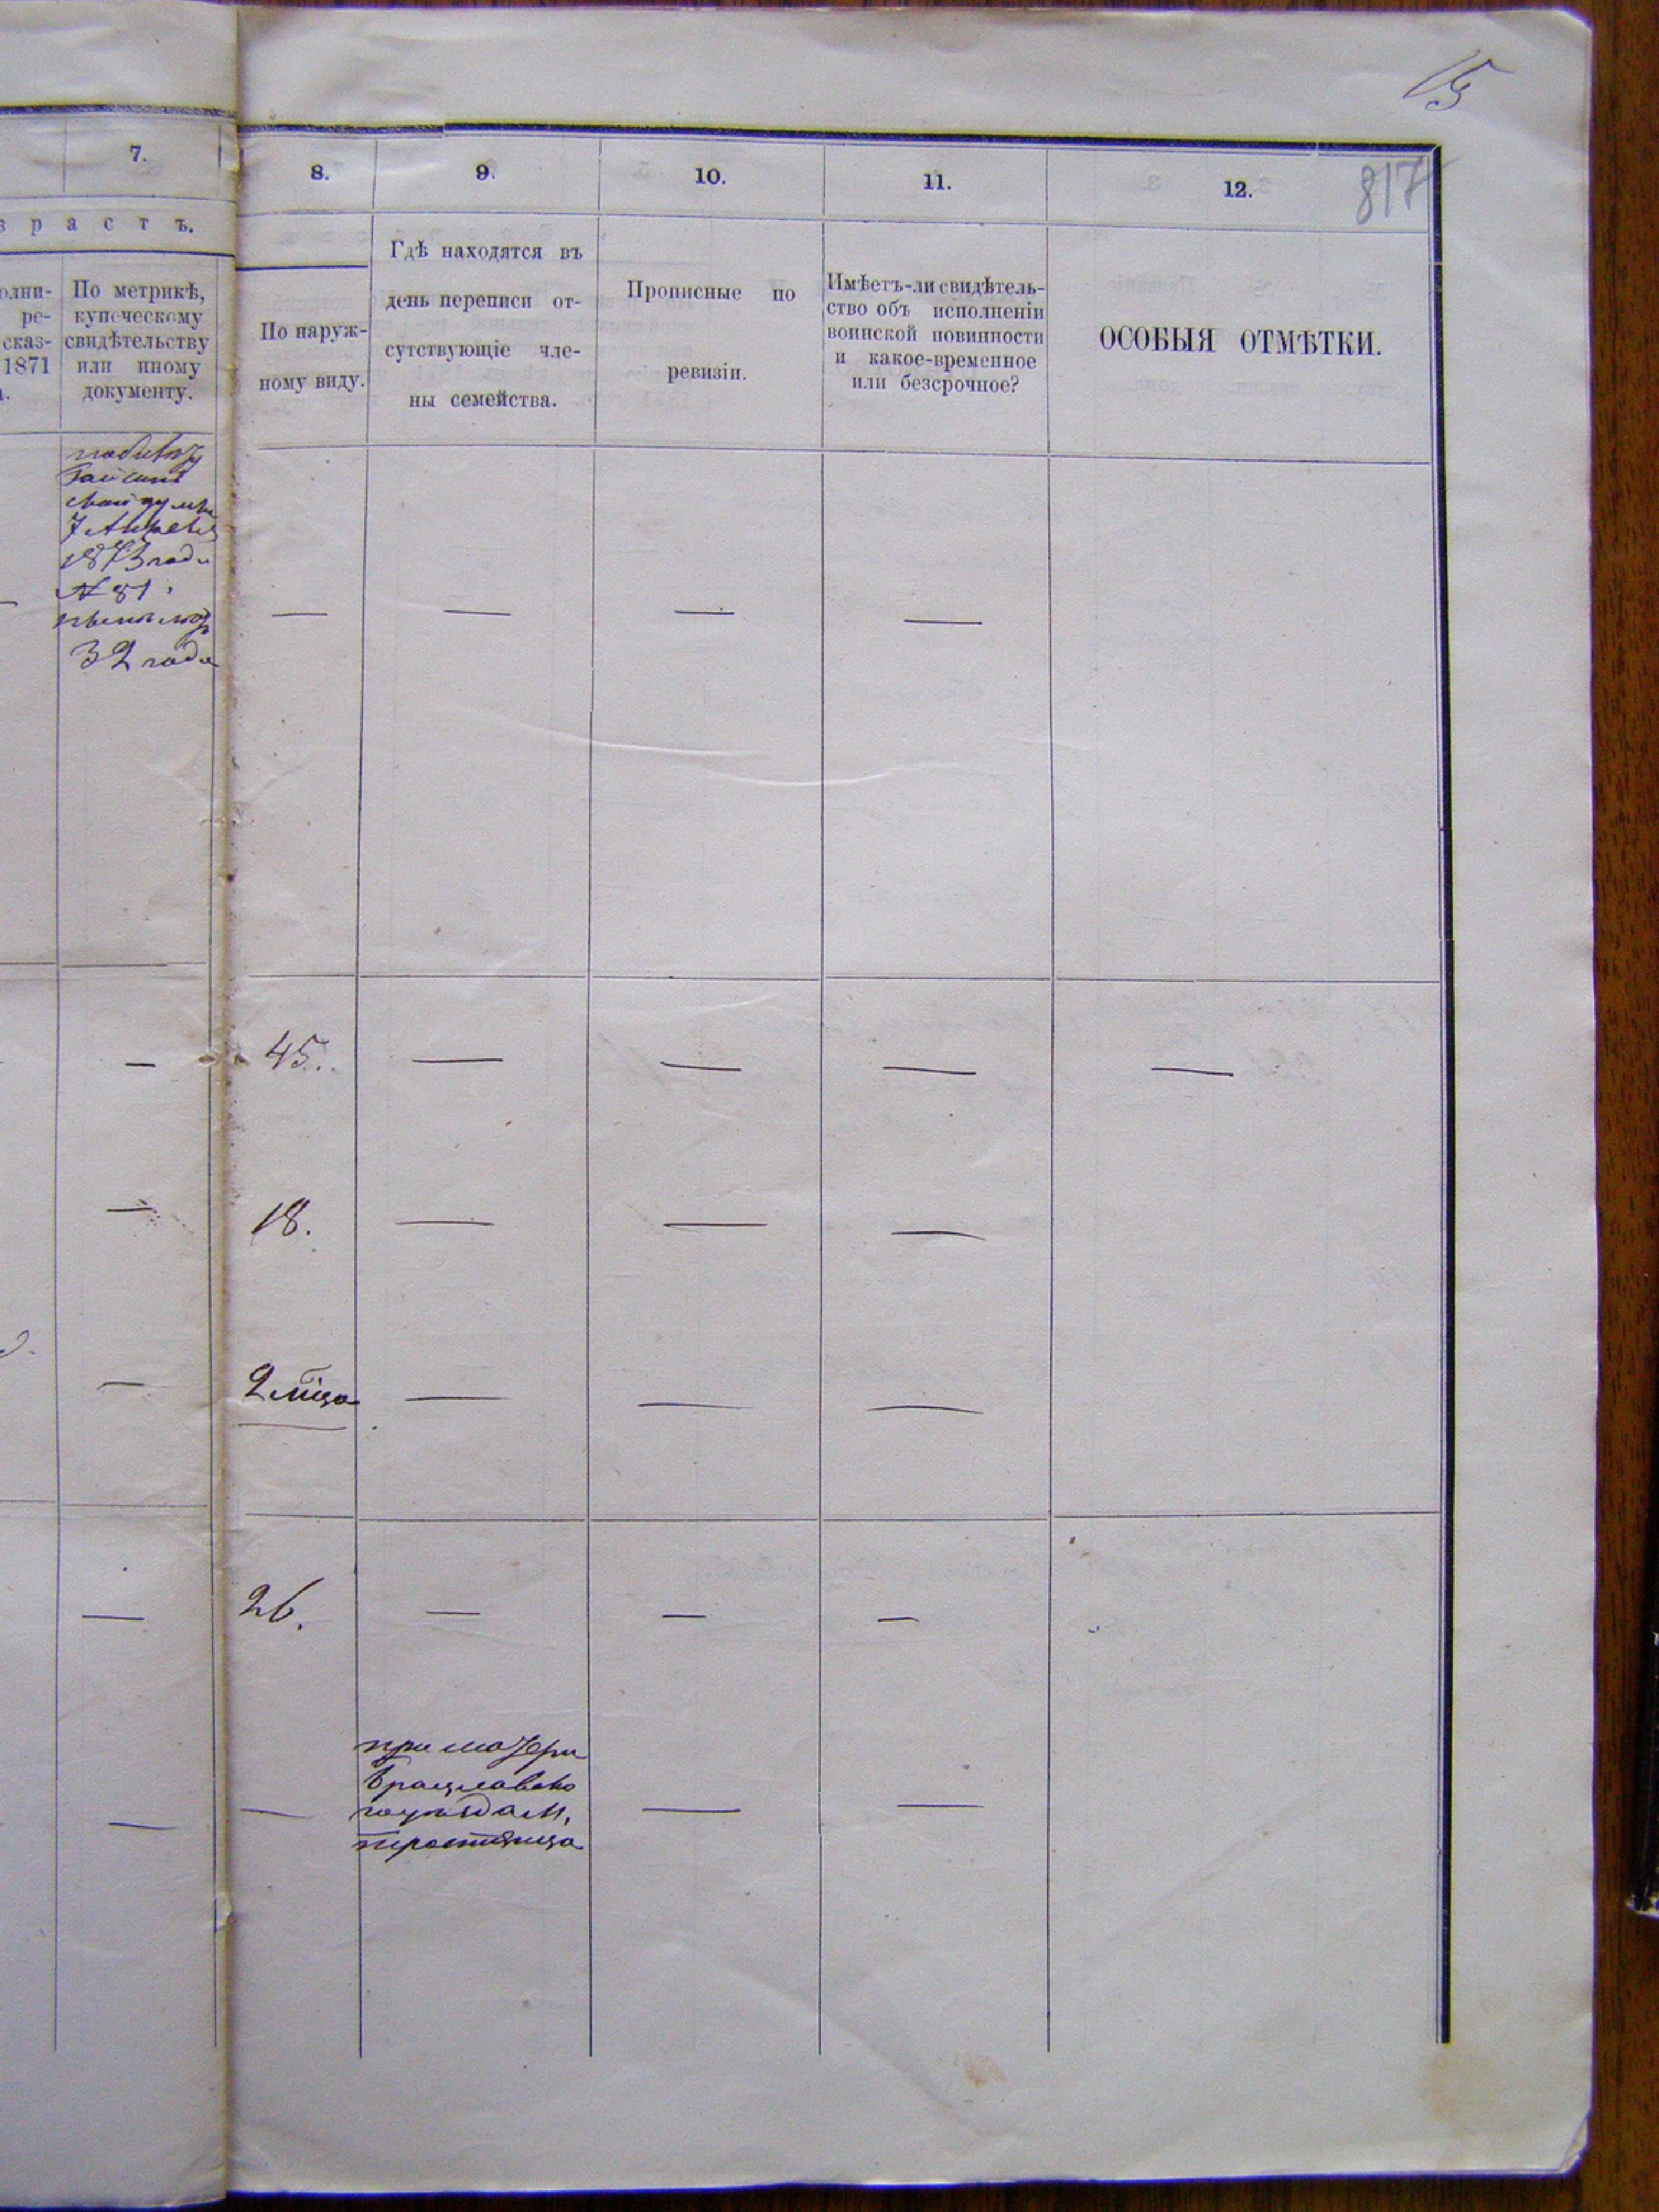 15
817
7.
8.
9.
10.
11.
12.
з р а с т ъ.
олни-
ре-
сказ-
1871
По метрикѣ,
купеческому
свидѣтельству
или иному
документу.
По наруж-
ному виду.
Гдѣ находятся въ
день переписи от-
сутствующіе чле-
ны семейства.
Прописные по
ревизіи.
Имѣетъ-ли свидѣтель-
ство объ исполненіи
воинской повинности
и какое-временное
или безсрочное?
ОСОБЫЯ ОТМѢТКИ.
7
1873 года
№ 81
32 года
—
—
—
—
—
45.
—
—
—
—
—
18.
—
—
—
—
2 мца
—
—
—
—
26.
—
—
—
—
—
при матери
Брацлавско
го уѣзда М.
тростянца
—
—